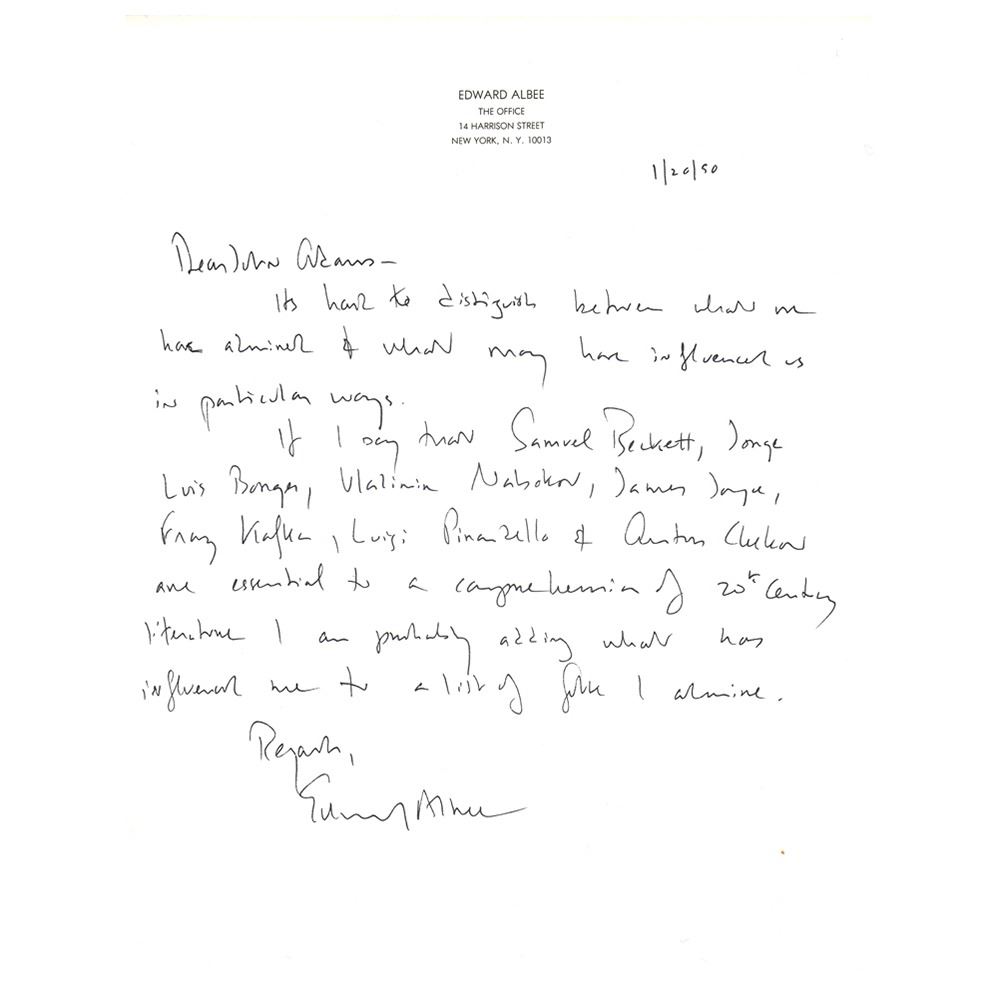 EDWARD ALBEE
THE OFFICE
14 HARRISON STREET
NEW YORK, N. Y. 10013
1/20/90
Dear John Adams—
Its hard to distinguish between what we
have admired & what may have influenced us
in particular ways.
If I say that Samuel Beckett, Jorge
Luis Borges, Vladimir Nabokov, James Joyce,
Franz Kafka, Luigi Pirandello & Anton Chekov
are essential to a comprehension of 20th Century
literature I am probably adding what has
influenced me to a list of folk I admire.
Regards,
Edward Albee